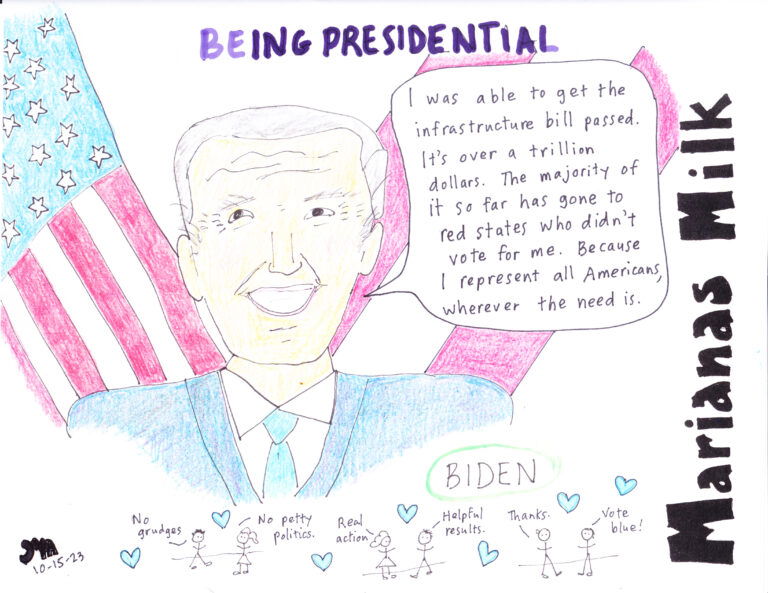 BEING PRESIDENTIAL
I was able to get the
infrastructure bill passed.
It's over a trillion
dollars. The majority of
it so far has gone to
red states who didn't
vote for me. Because
I represent all Americans,
wherever the need is.
Marianas Milk
BIDEN
No
grudges
No petty
politics.
Real
action
Helpful
results.
Thanks.
Vote
blue!
10-15-23